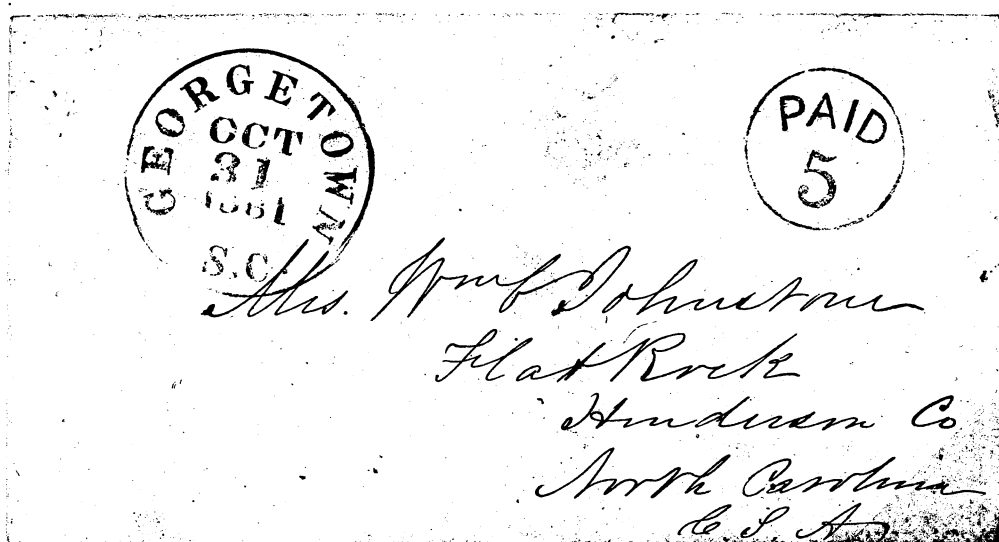 GEORGETOWN
OCT
31
1861
S.C.
PAID
5
Mrs. Wm C Johnstone
Flat Rock
Henderson Co
North Carolina
C. S. A